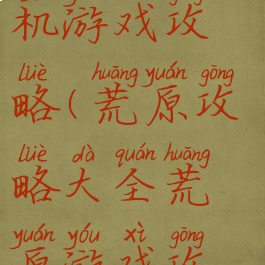 机游戏攻
lüè huāng yuán gōng
略(荒原攻
lüè dà quán huāng
略大全荒
yuán yóu xì gōng
原游戏攻